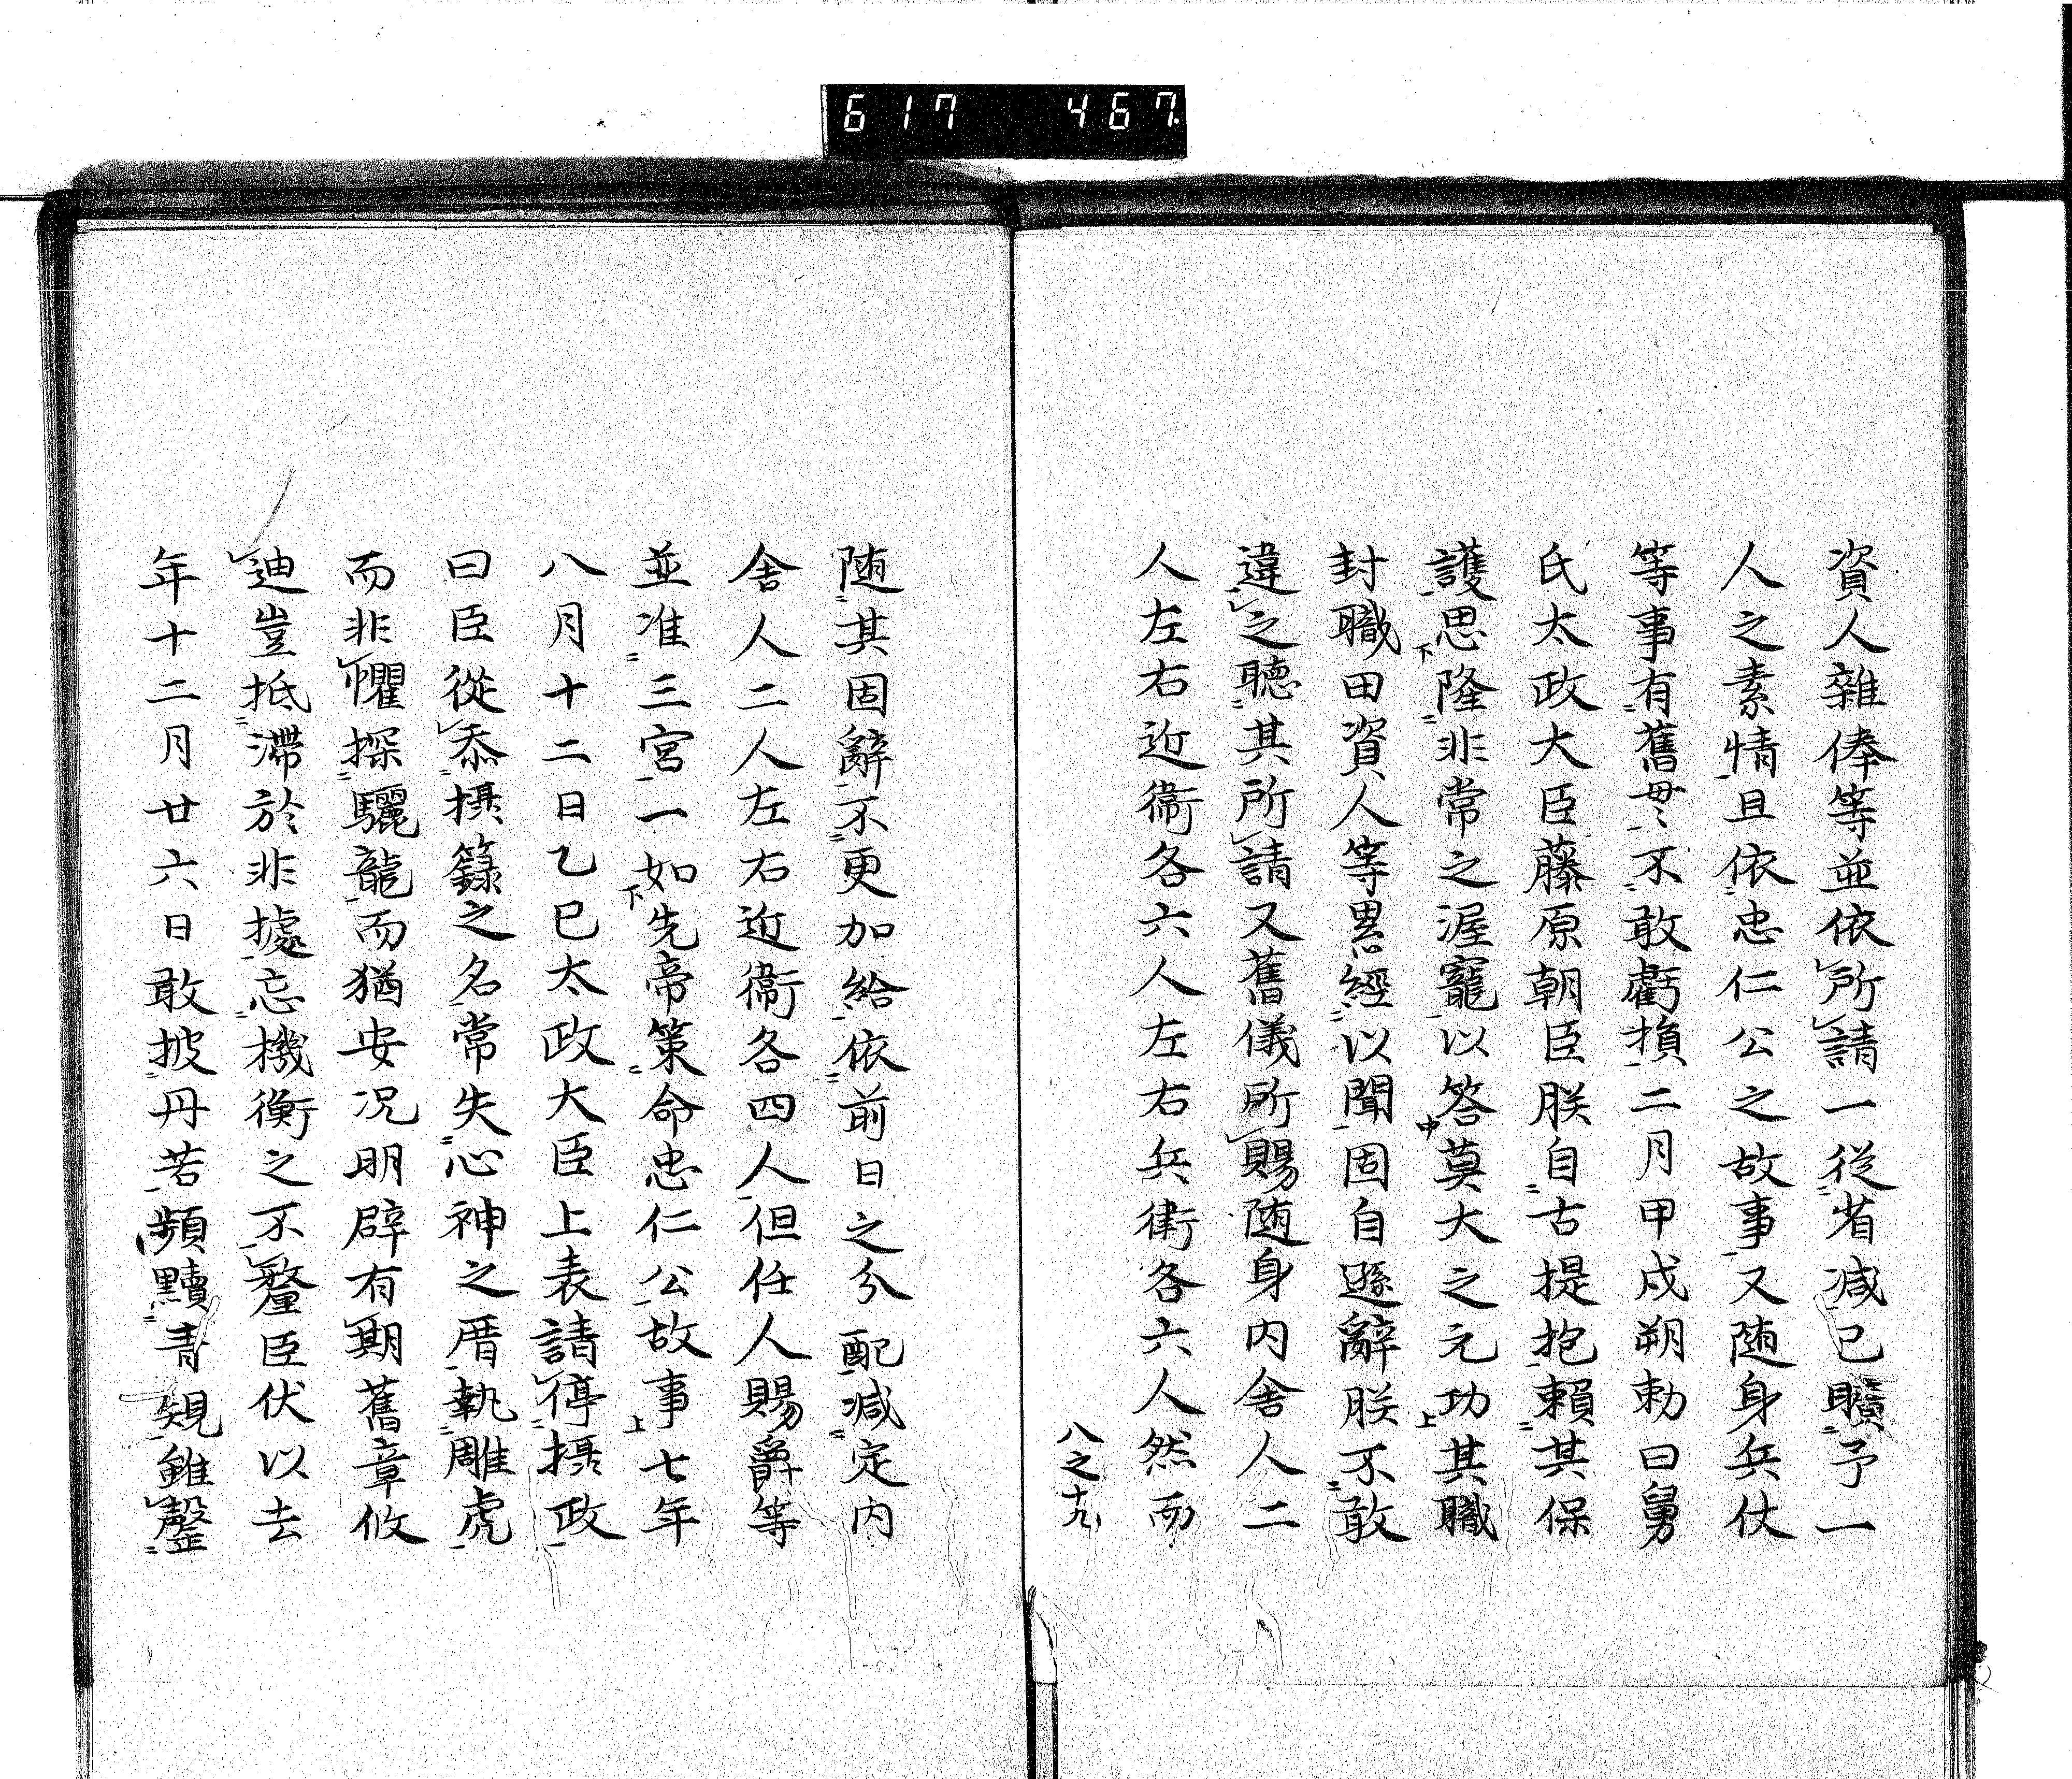 617 467
資人雜俸等並依所請一從省减已曠予一
人之素情且依忠仁公之故事又随身兵仗
等事有舊貫不敢虧損二月甲戌朔勅曰舅
氏太政大臣藤原朝臣朕自古提抱賴其保
護思隆非常之渥寵以答莫大之元功其職
封職田資人等累經以聞固自遜辭朕不敢
違之聴其所請又舊儀所賜随身内舎人二
人左右近衞各六人左右兵衛各六人然而
八之十九
随其固辭不更加給依前日之分配减定内
舎人二人左右近衞各四人但任人賜爵等
並准三宮一如先帝策命忠仁公故事七年
八月十二日乙巳太政大臣上表請停摂政
曰臣從忝摂籙之名常失心神之厝執雕虎
而非懼探驪龍而猶安况明辟有期舊章攸
迪豈抵滯於非據忘機衡之不釐臣伏以去
年十二月廿六日敢披丹若頻黷青規雖罄